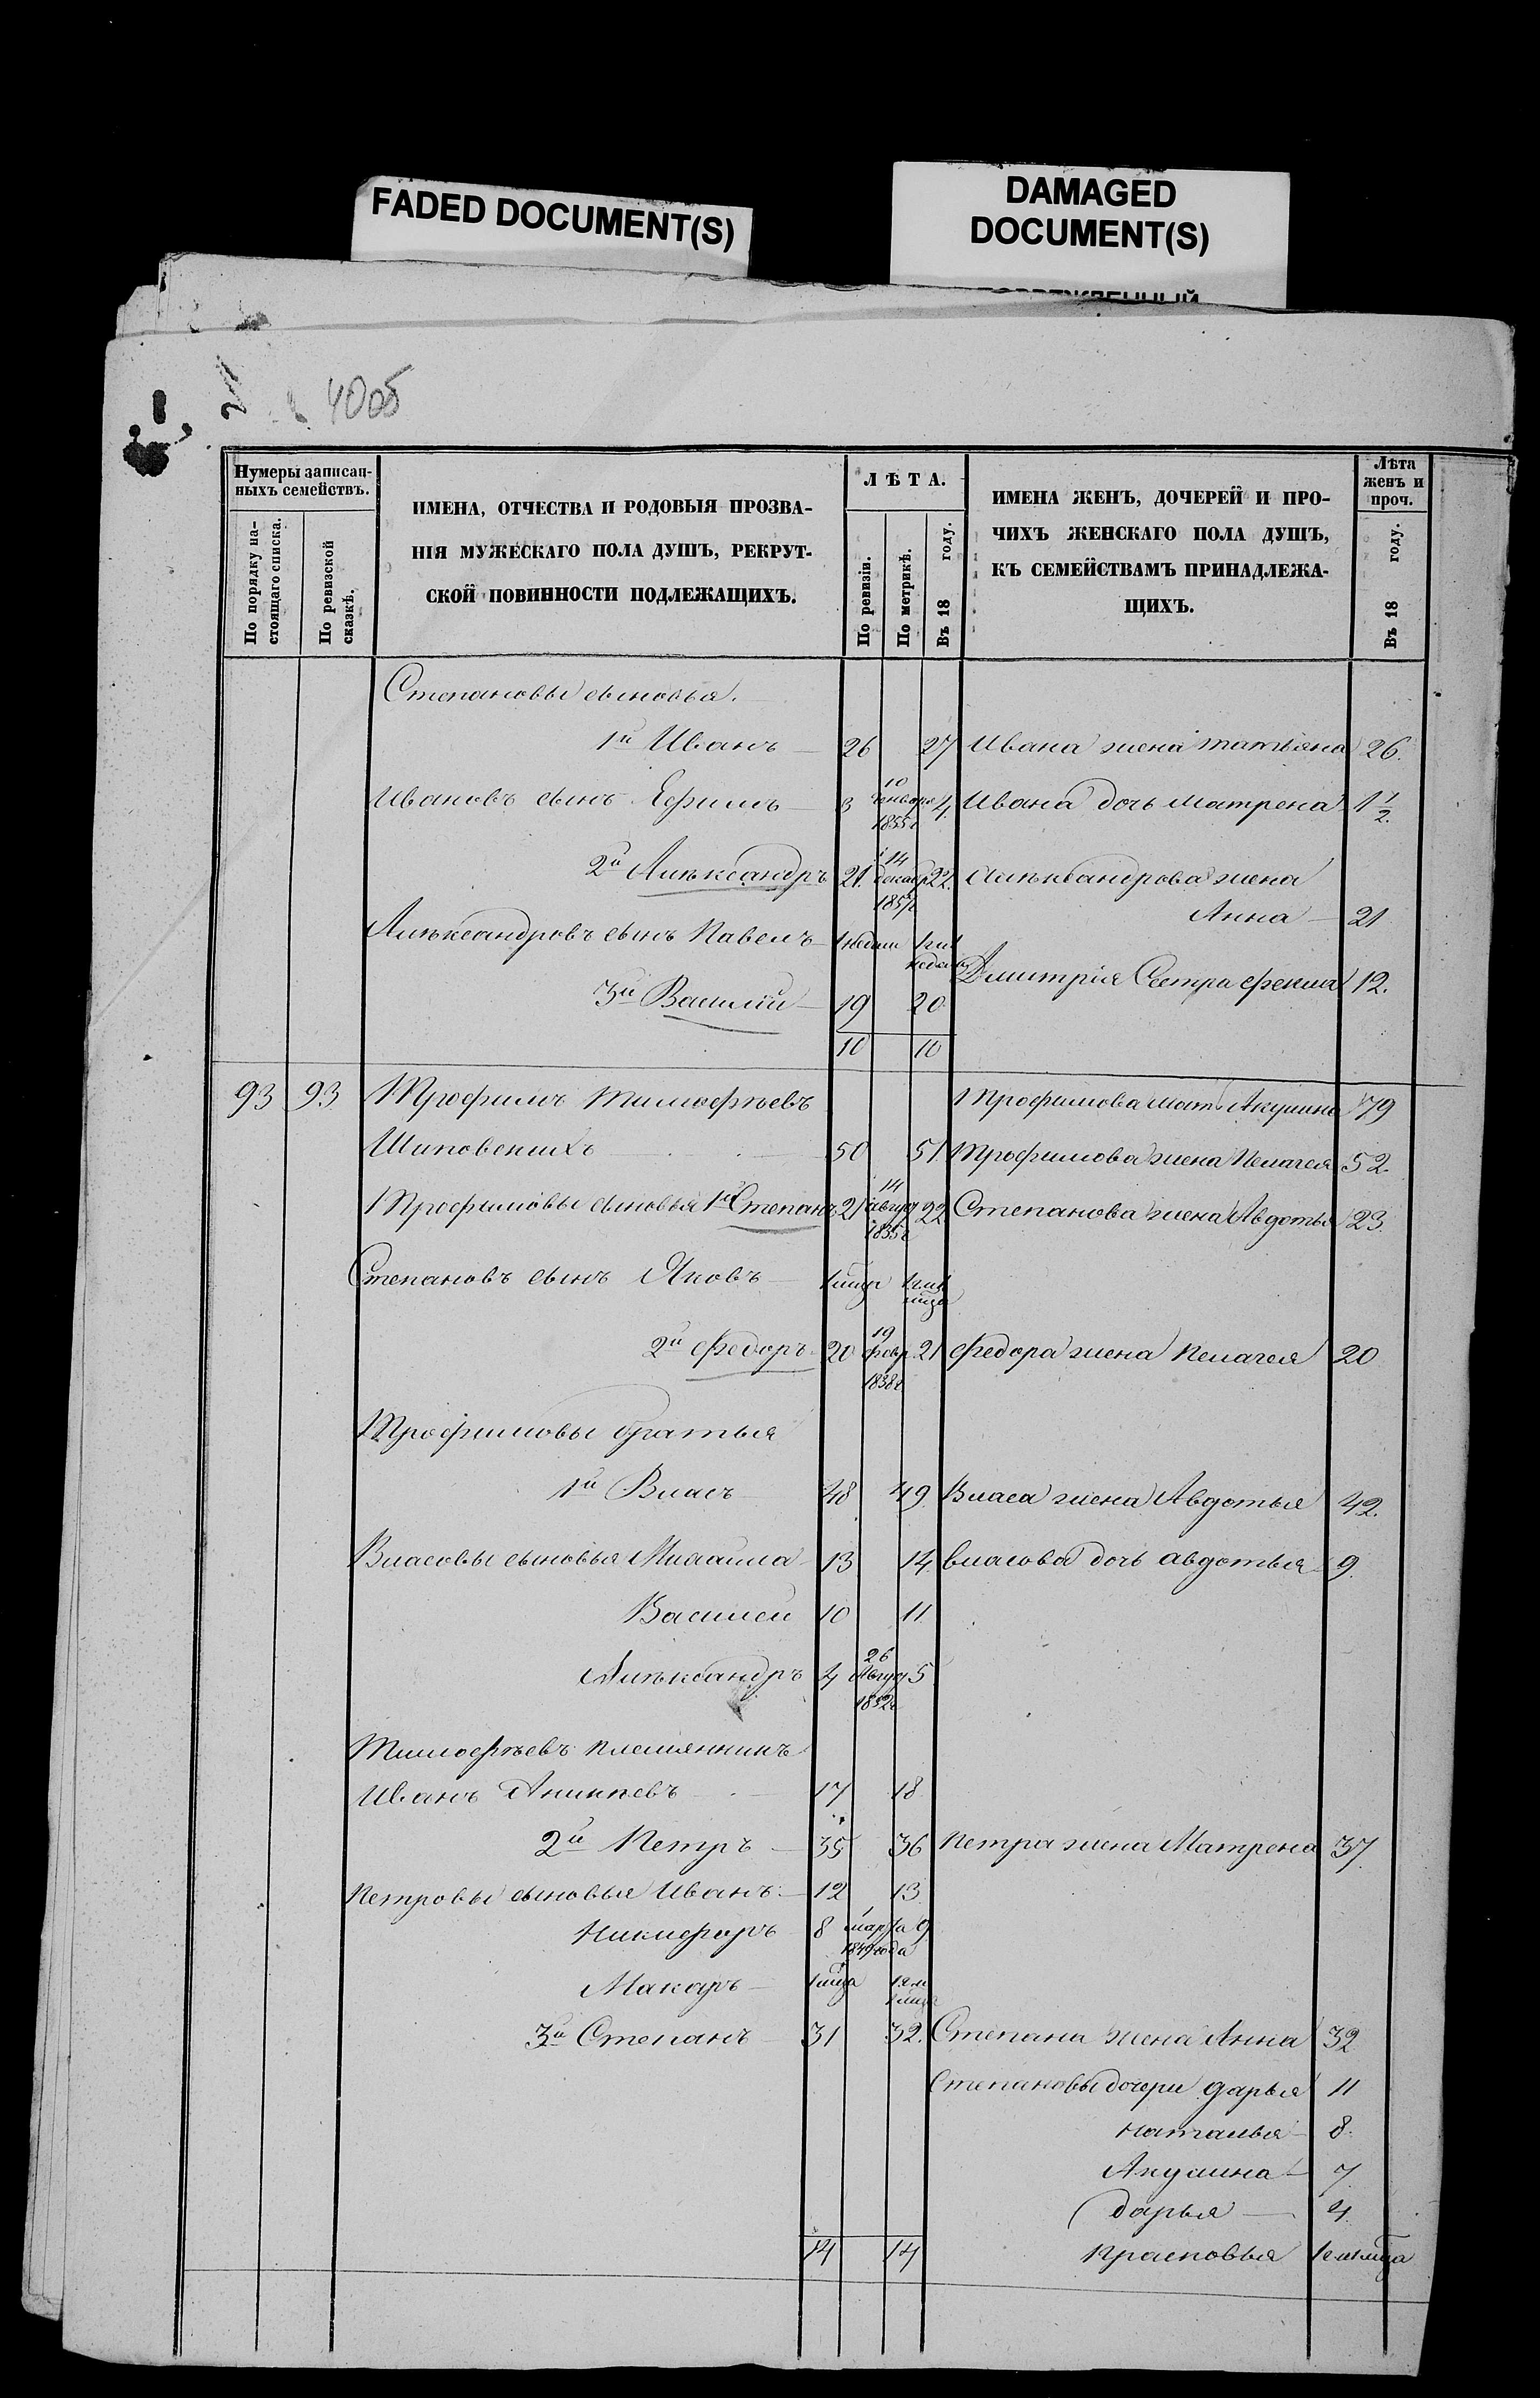 FADED DOCUMENT(S)
DAMAGED
DOCUMENT(S)
4005
Нумеры записан-
ныхъ семействъ.
По порядку на-
стоящаго списка.
По ревизской
сказкѣ.
ИМЕНА, ОТЧЕСТВА И РОДОВЫЯ ПРОЗВА-
НІЯ МУЖЕСКАГО ПОЛА ДУШЪ, РЕКРУТ-
СКОЙ ПОВИННОСТИ ПОДЛЕЖАЩИХЪ.
ЛѢТА.
По ревизіи.
По метрикѣ.
Въ 18 году.
ИМЕНА ЖЕНЪ, ДОЧЕРЕЙ И ПРО-
ЧИХЪ ЖЕНСКАГО ПОЛА ДУШЪ,
КЪ СЕМЕЙСТВАМЪ ПРИНАДЛЕЖА-
ЩИХЪ.
Лѣта
женъ и
проч.
Въ 18 году.
Степановы сыновья.
1й Иванъ 26 27 Ивана жена татьяна 26.
Ивановъ сынъ Ефимъ 3 10 Генваря 1855г 4. Ивана дочь матрена 1 1/2.
2й Алѣксандръ 21. 14 декабр 22. Алѣксандрова жена
Анна 21
Алѣксандровъ сынъ Павелъ
3й Василій 19 20 Дмитрія Сестра фекла 12.
10 10
93 93 Трофимъ тимофѣевъ Трофимова мать Акулина 79
Шиповскихъ 50 51. Трофимова жена Пелагея 52.
Трофимовы сыновья 1й Степанъ 21 14 август 1835г 22 Степанова жена Авдотья 23.
Степановъ сынъ Яковъ
2й федоръ 20 19 февр. 1838г 21 федора жена пелагея 20
Трофимовы братья
1й Власъ 48 49. Власа жена Авдотья 42.
Власовы сыновья Михаила 13 14. власова дочь авдотья 9.
Василей 10 11.
Алѣксандръ 4 26 Август 1852г 5
Тимофѣевъ племянникъ
Иванъ 17 18
2й Петръ 35 36 Петра жена Матрена 37.
Петровы сыновья Иванъ 12 13
Никифоръ 8 1 марта 1849 года 9
Макаръ
3й Степанъ 31 32. Степана жена Анна 32
Степановы дочери дарья 11
наталья 8.
Акулина 7.
дарья 4.
14 14 прасковья